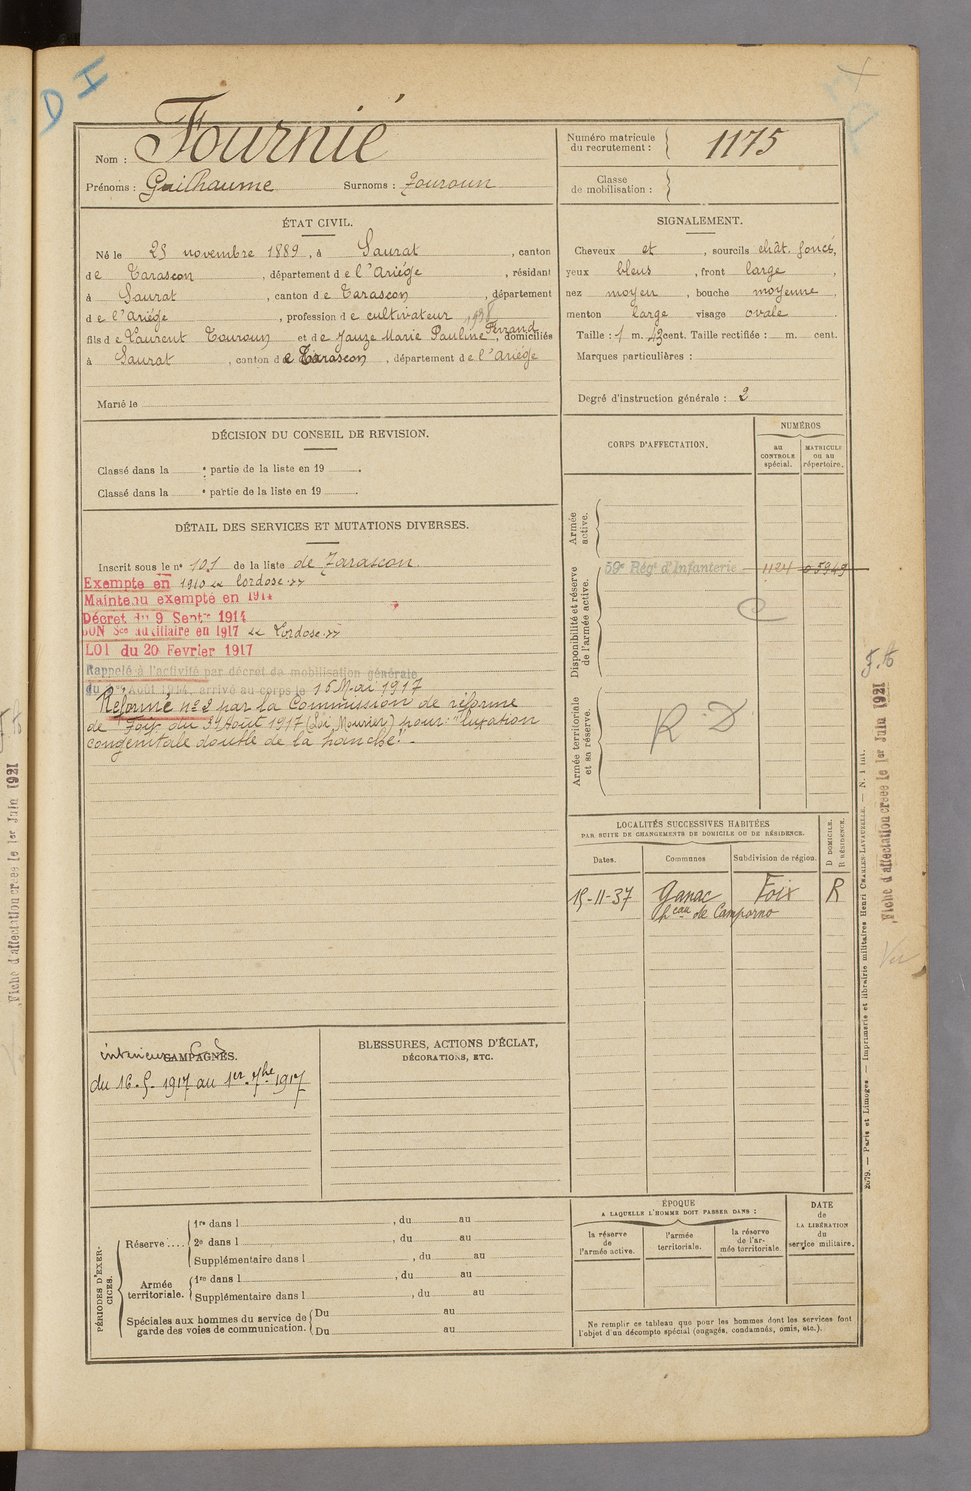 D I
Nom : Fournié
Prénoms : Guilhaume Surnoms : Touroun
Numéro matricule du recrutement : 1175
Classe de mobilisation :
ÉTAT CIVIL.
Né le 23 novembre 1889, à Saurat, canton
de Tarascon, département de l'Ariège, résidant
à Saurat, canton de Tarascon, département
de l'Ariège, profession de cultivateur
fils de Laurent Touroun et de Jauze Marie Pauline Ferrand, domiciliés
à Saurat, canton de Tarascon, département de l'Ariège
Marié le
SIGNALEMENT.
Cheveux et, sourcils chât. foncés,
yeux bleus, front large,
nez moyen, bouche moyenne,
menton large visage ovale
Taille : 1 m. 43 cent. Taille rectifiée : m. cent.
Marques particulières :
Degré d'instruction générale : 2
DÉCISION DU CONSEIL DE REVISION.
Classé dans la e partie de la liste en 19 .
Classé dans la e partie de la liste en 19 .
DÉTAIL DES SERVICES ET MUTATIONS DIVERSES.
Inscrit sous le n° 101 de la liste de Tarascon.
Exempté en 1910 lordose
Maintenu exempté en 1914
Décret du 9 Septre 1914
BON Sce auxiliaire en 1917 Lordose
LOI du 20 Fevrier 1917
Rappelé à l'activité par décret de mobilisation générale
du 1er Août 1914, arrivé au corps le 15 Mai 1917
Réformé n° 2 par la Commission de réforme
de Foix du 31 Août 1917 (Loi Mourier) pour "luxation
congénitale double de la hanche".
CORPS D'AFFECTATION.
NUMÉROS
au CONTROLE spécial.
MATRICULE ou au répertoire.
Armée active.
Disponibilité et réserve de l'armée active.
59e Régt d'Infanterie 1124 05949
Armée territoriale et sa réserve.
R. D.
LOCALITÉS SUCCESSIVES HABITÉES
PAR SUITE DE CHANGEMENTS DE DOMICILE OU DE RÉSIDENCE.
Dates. Communes Subdivision de région. D DOMICILE. R RÉSIDENCE.
15-11-37 Ganac Foix R
heau de Camporno
CAMPAGNES.
intérieur C S
du 16.5.1917 au 1er 7bre 1917
BLESSURES, ACTIONS D'ÉCLAT,
DÉCORATIONS, ETC.
PÉRIODES D'EXERCICES.
Réserve.... 1re dans l , du au
2e dans l , du au
Supplémentaire dans l , du au
Armée territoriale. 1re dans l , du au
Supplémentaire dans l , du au
Spéciales aux hommes du service de garde des voies de communication. Du au
Du au
ÉPOQUE
A LAQUELLE L'HOMME DOIT PASSER DANS :
la réserve de l'armée active.
l'armée territoriale.
la réserve de l'armée territoriale.
DATE de LA LIBÉRATION du service militaire.
Ne remplir ce tableau que pour les hommes dont les services font
l'objet d'un décompte spécial (engagés, condamnés, omis, etc.).
2679. — Paris et Limoges. — Imprimerie et librairie militaires Henri CHARLES-LAVAUZELLE. — N. 1 int.
Fiche d'affectation créée le 1er Juin 1921
Fiche d'affectation créée le 1er Juin 1921